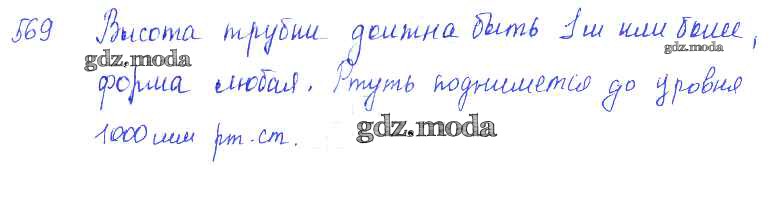 569 Высота трубки должна быть 1м или более,
gdz.moda
gdz.moda
форма любая. Ртуть поднимется до уровня
1000 мм рт. ст.
gdz.moda